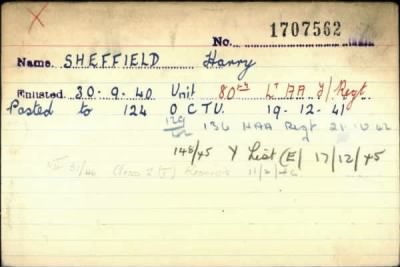 No. 1707562
Name. SHEFFIELD Harry
Enlisted. 30-9-40 Unit 80th Lt AA T/Regt
Posted to 124 OCTU. 19-12-41
136 HAA Regt 21.10.42
148/45 Y List (E) 17/12/45
Class Z (T) Reserve 11/2/46